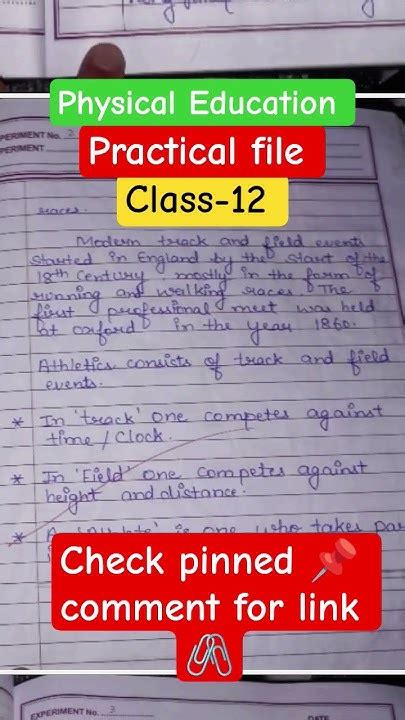 Physical Education
PERIMENT No. 3
Practical file
PERIMENT
Class-12
races.
Modern track and field events
started in England by the start of the
18th Century mostly in the form of
running and walking races. The
first professional meet was held
at oxford in the year 1860.
Athletics consists of track and field
events.
* In 'track' one competes against
time / Clock.
* In 'Field' one competes against
height and distance.
* is one who takes par
Check pinned 📌
comment for link
🖇️
EXPERIMENT No. 3
DATE